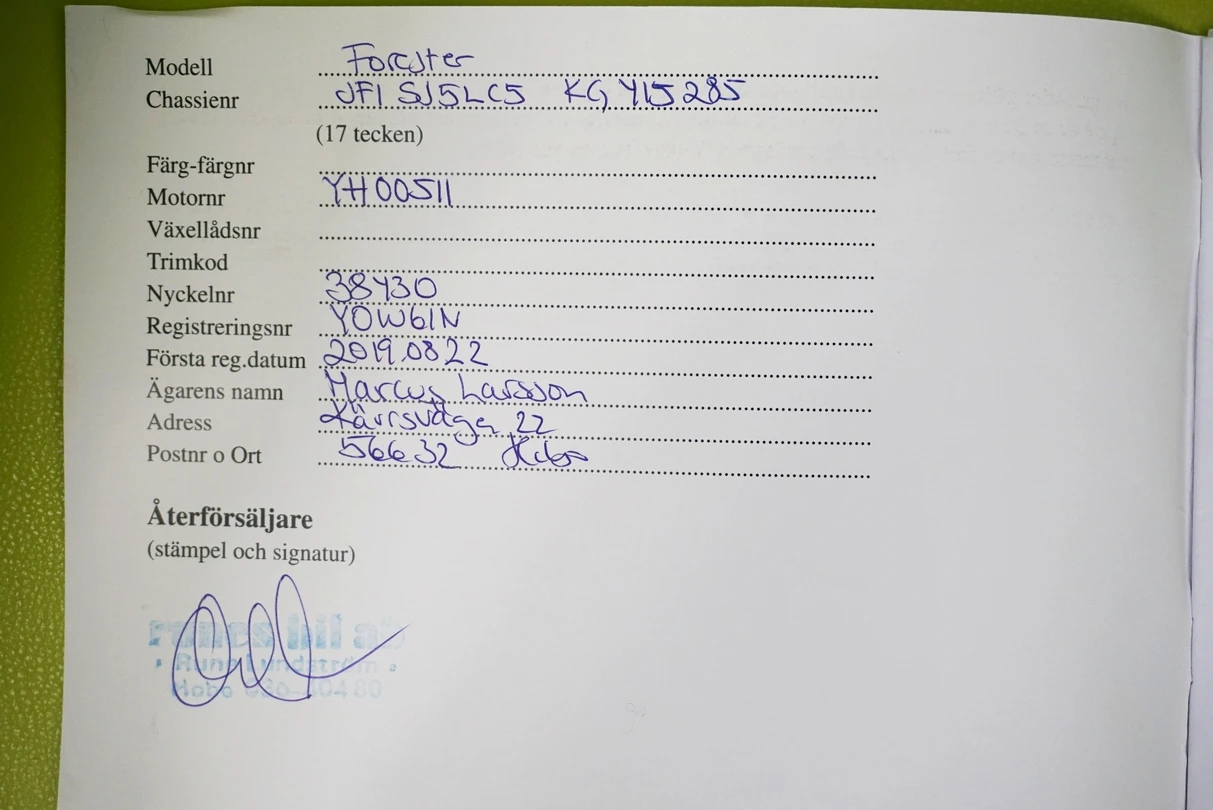 Modell Forester
Chassienr JF1 SJ5LC5 KG Y15285
(17 tecken)
Färg-färgnr
Motornr YH00511
Växellådsnr
Trimkod
Nyckelnr 38430
Registreringsnr YOW61N
Första reg.datum 2019.08 22
Ägarens namn Marcus Larsson
Adress 22
Postnr o Ort 56632 Habo
Återförsäljare
(stämpel och signatur)
bil
Rune Lundström
Habo 40480